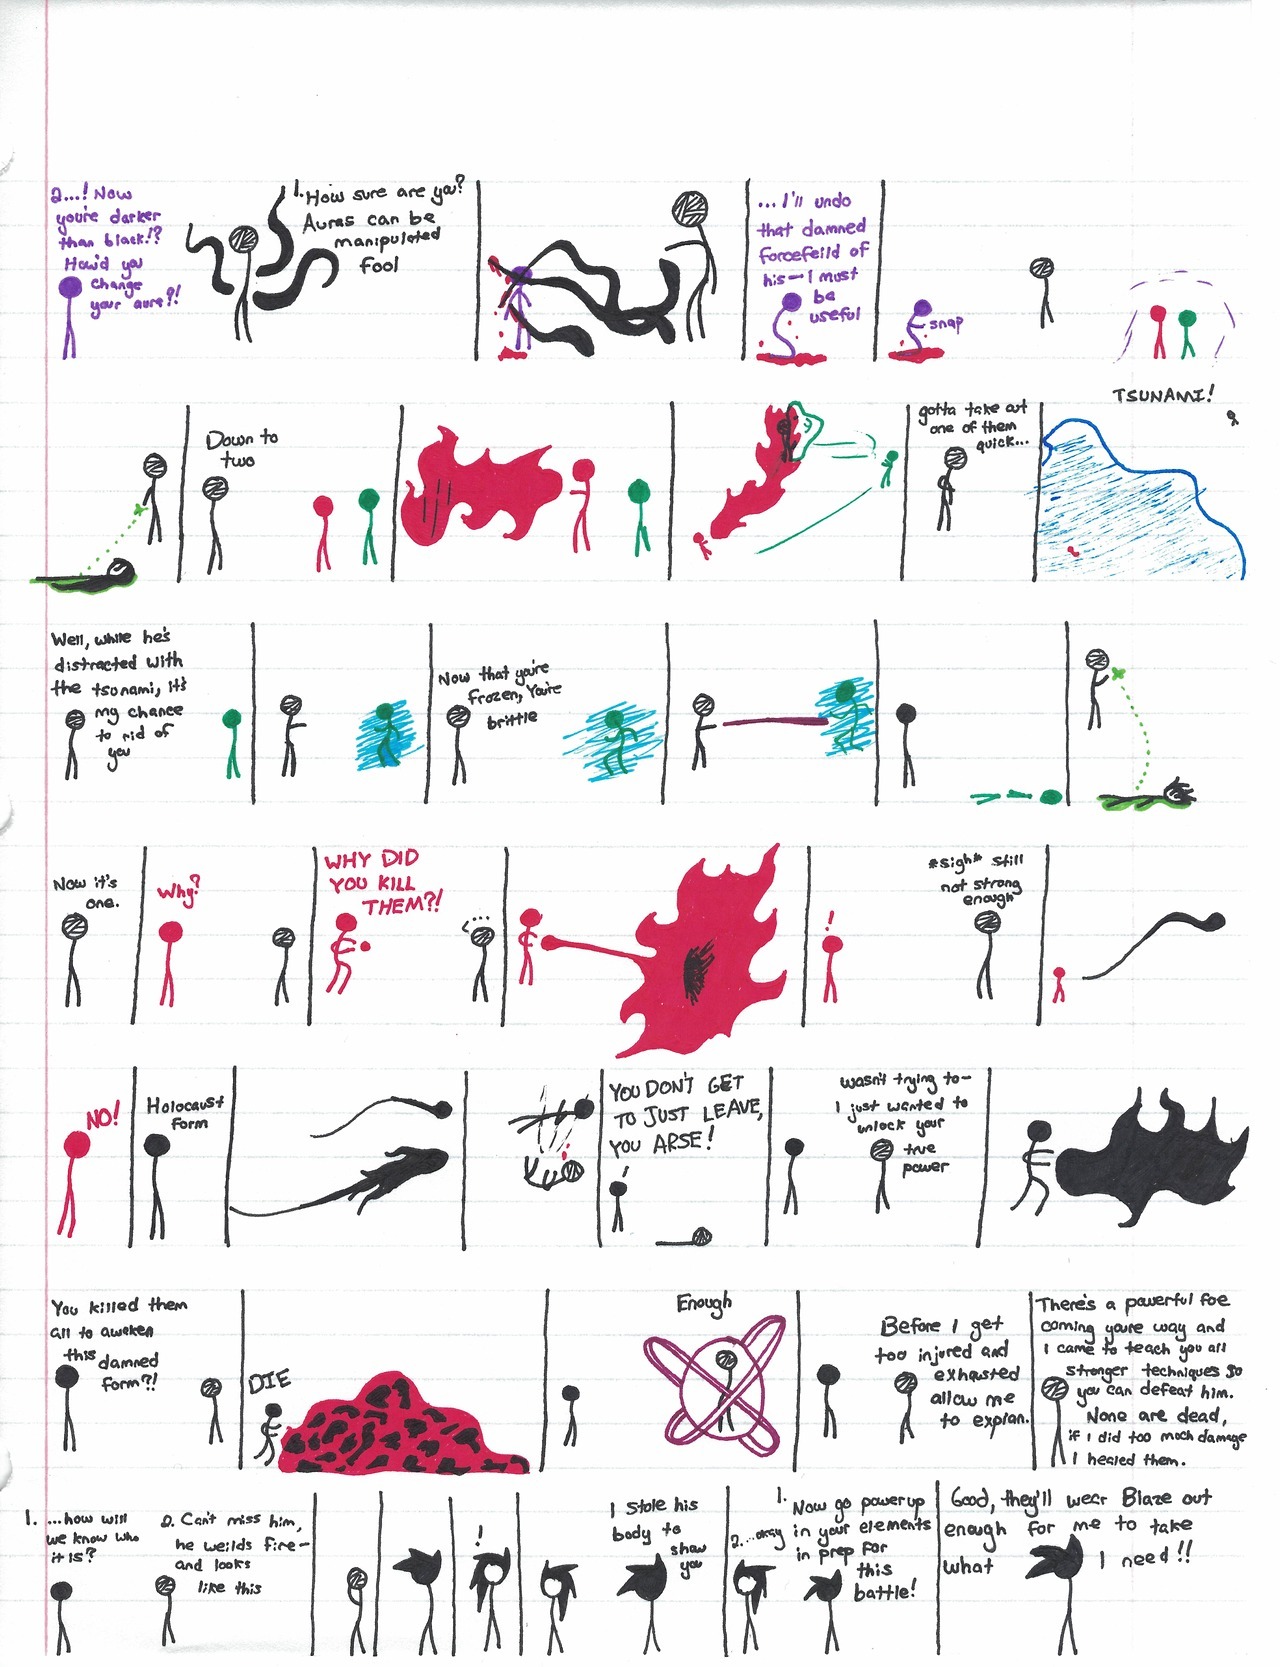 2...! Now
you're darker
than black!?
How'd you
change
your aura?!
1. How sure are you?
Auras can be
manipulated
fool
...I'll undo
that damned
forcefeild of
his—I must
be
useful
snap
Down to
two
gotta take out
one of them
quick...
TSUNAMI!
Well, while he's
distracted with
the tsunami, it's
my chance
to rid of
you
Now that you're
frozen, You're
brittle
Now it's
one.
Why?
WHY DID
YOU KILL
THEM?!
...
!
*sigh* still
not strong
enough
NO!
Holocaust
form
YOU DON'T GET
TO JUST LEAVE,
YOU ARSE!
wasn't trying to-
I just wanted to
unlock your
true
power
You killed them
all to awaken
this damned
form?!
DIE
Enough
Before I get
too injured and
exhausted
allow me
to explan.
There's a powerful foe
coming youre way and
I came to teach you all
stronger techniques so
you can defeat him.
None are dead,
if I did too much damage
I healed them.
1. ...how will
we know who
it is?
2. Can't miss him,
he weilds fire—
and looks
like this
!
I stole his
body to
show
you
2....okay
1. Now go power up
in your elements
in prep for
this
battle!
Good, they'll wear Blaze out
enough for me to take
what I need!!